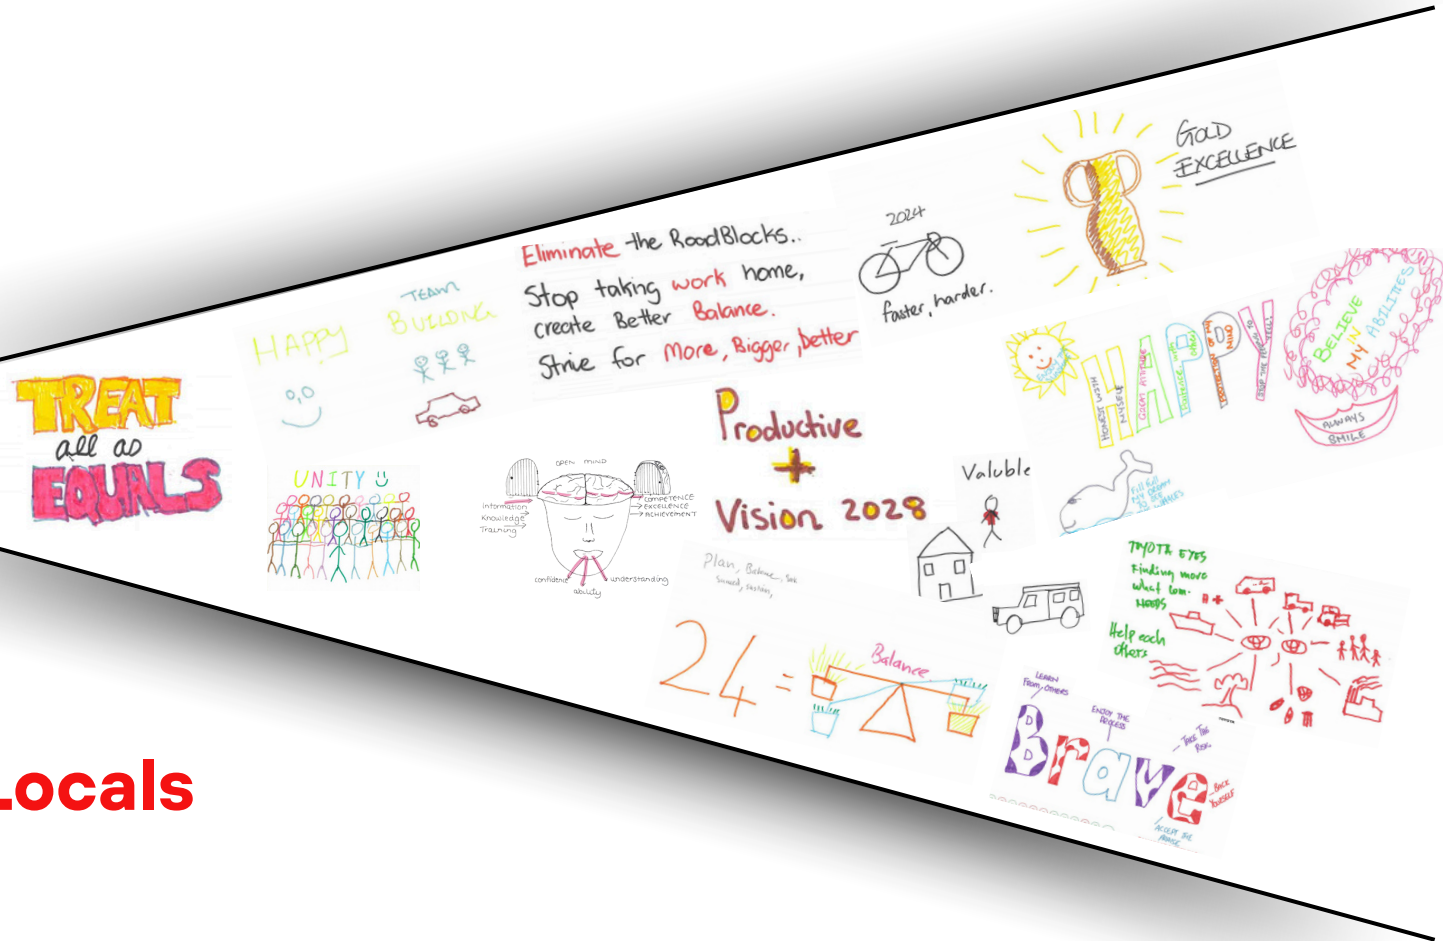 TREAT
all as
EQUALS
HAPPY
TEAM
BUILDING
UNITY
Eliminate the RoadBlocks..
Stop taking work home,
create Better Balance.
Strive for More, Bigger, better
2024
faster, harder.
GOLD
EXCELLENCE
OPEN MIND
Information
Knowledge
Training
COMPETENCE
EXCELLENCE
ACHIEVEMENT
confidence
ability
understanding
Productive
+
Vision 2028
Valuble
Plan, Balance,
24 = Balance
HAPPY
HONEST WITH
MYSELF
GREAT ATTITUDE
BELIEVE
IN
MY ABILITIES
ALWAYS
SMILE
TOYOTA EYES
Finding more
what com-
NEEDS
Help each
others
TOYOTA
LEARN
FROM OTHERS
ENJOY THE
PROCESS
TAKE THE
RISK
Brave
BACK
YOURSELF
ACCEPT THE
Locals